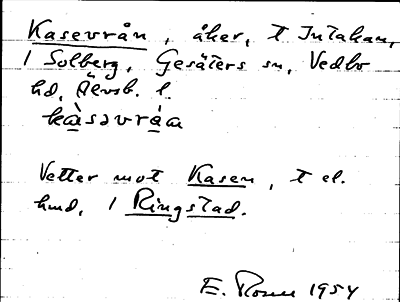 Kasevrån, åker, t Intakan,
1 Solberg, Gesäters sn, Vedbo
hd, Älvsb. l.
kàsəvráa
Vetter mot Kasen, t el.
hmd, 1 Ringstad.
E. Rosen 1954